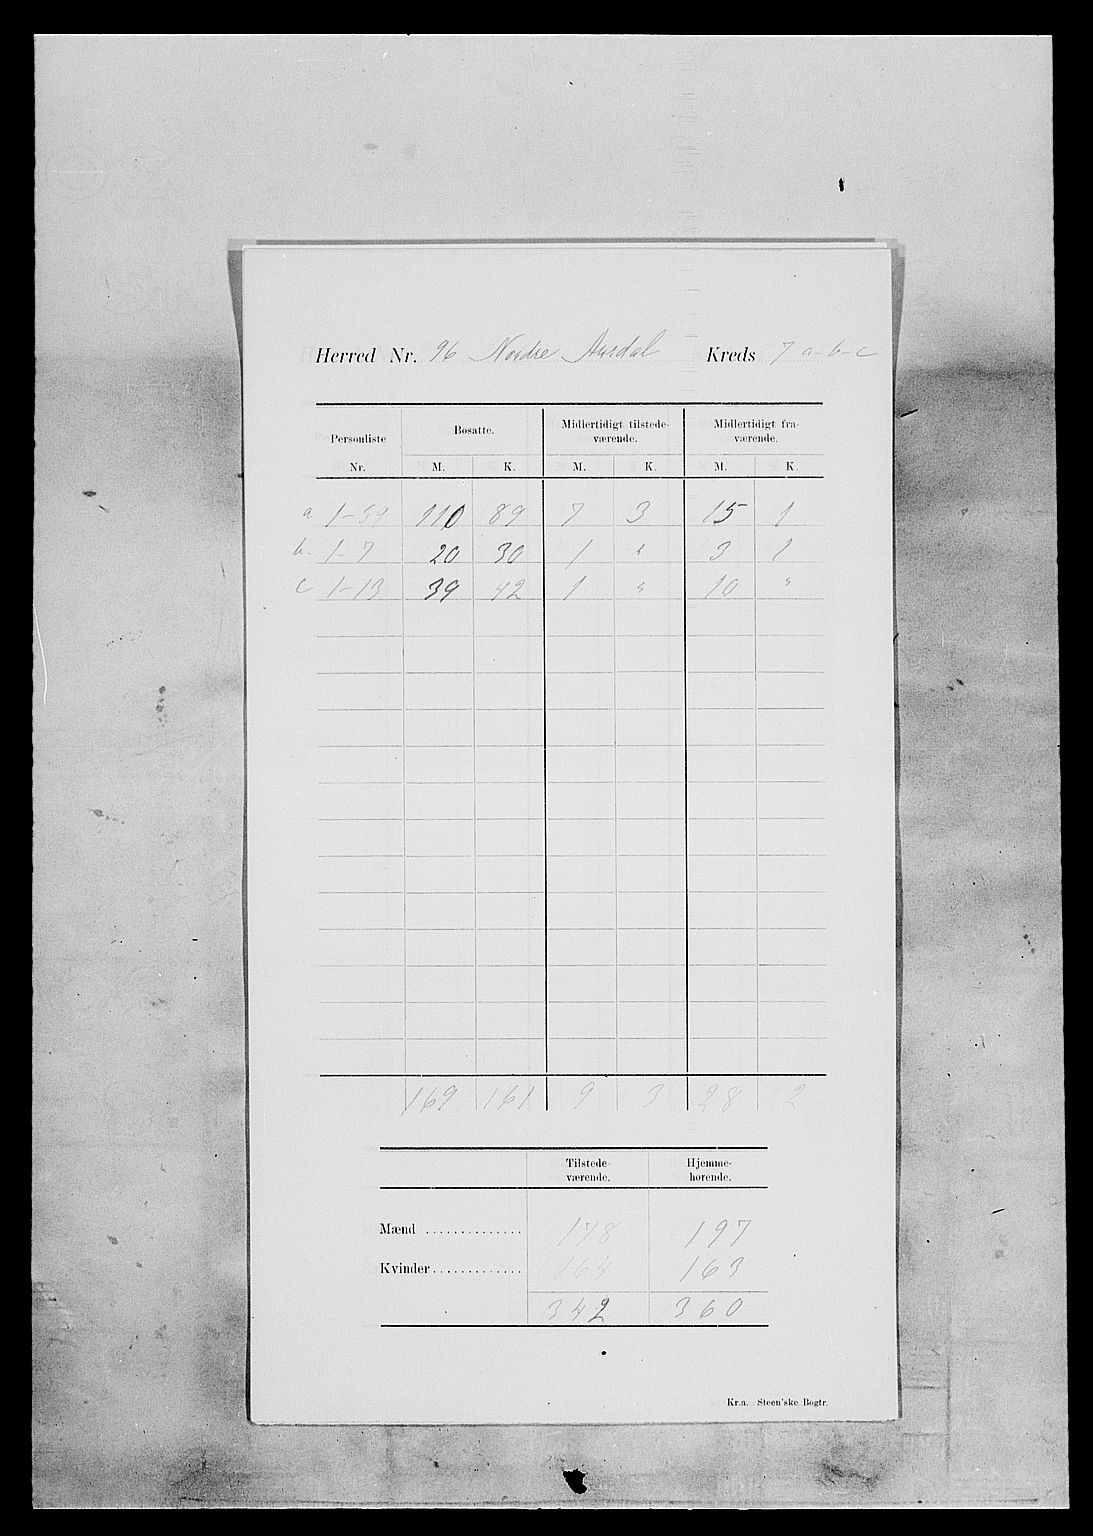 Herred Nr. 96 Nordre Aurdal Kreds 7 a-b-c
Personliste Bosatte. Midlertidigt tilstede- Midlertidigt fra-
værende. værende.
Nr. M. K. M. K. M. K.
a 1-59 110 89 7 3 15 1
b 1-7 20 30 1 " 3 1
c 1-13 39 42 1 " 10 "
169 161 9 3 28 2
Tilstede- Hjemme-
værende. hørende.
Mænd .............. 178 197
Kvinder............. 164 163
342 360
Kr.a. Steen'ske Bogtr.